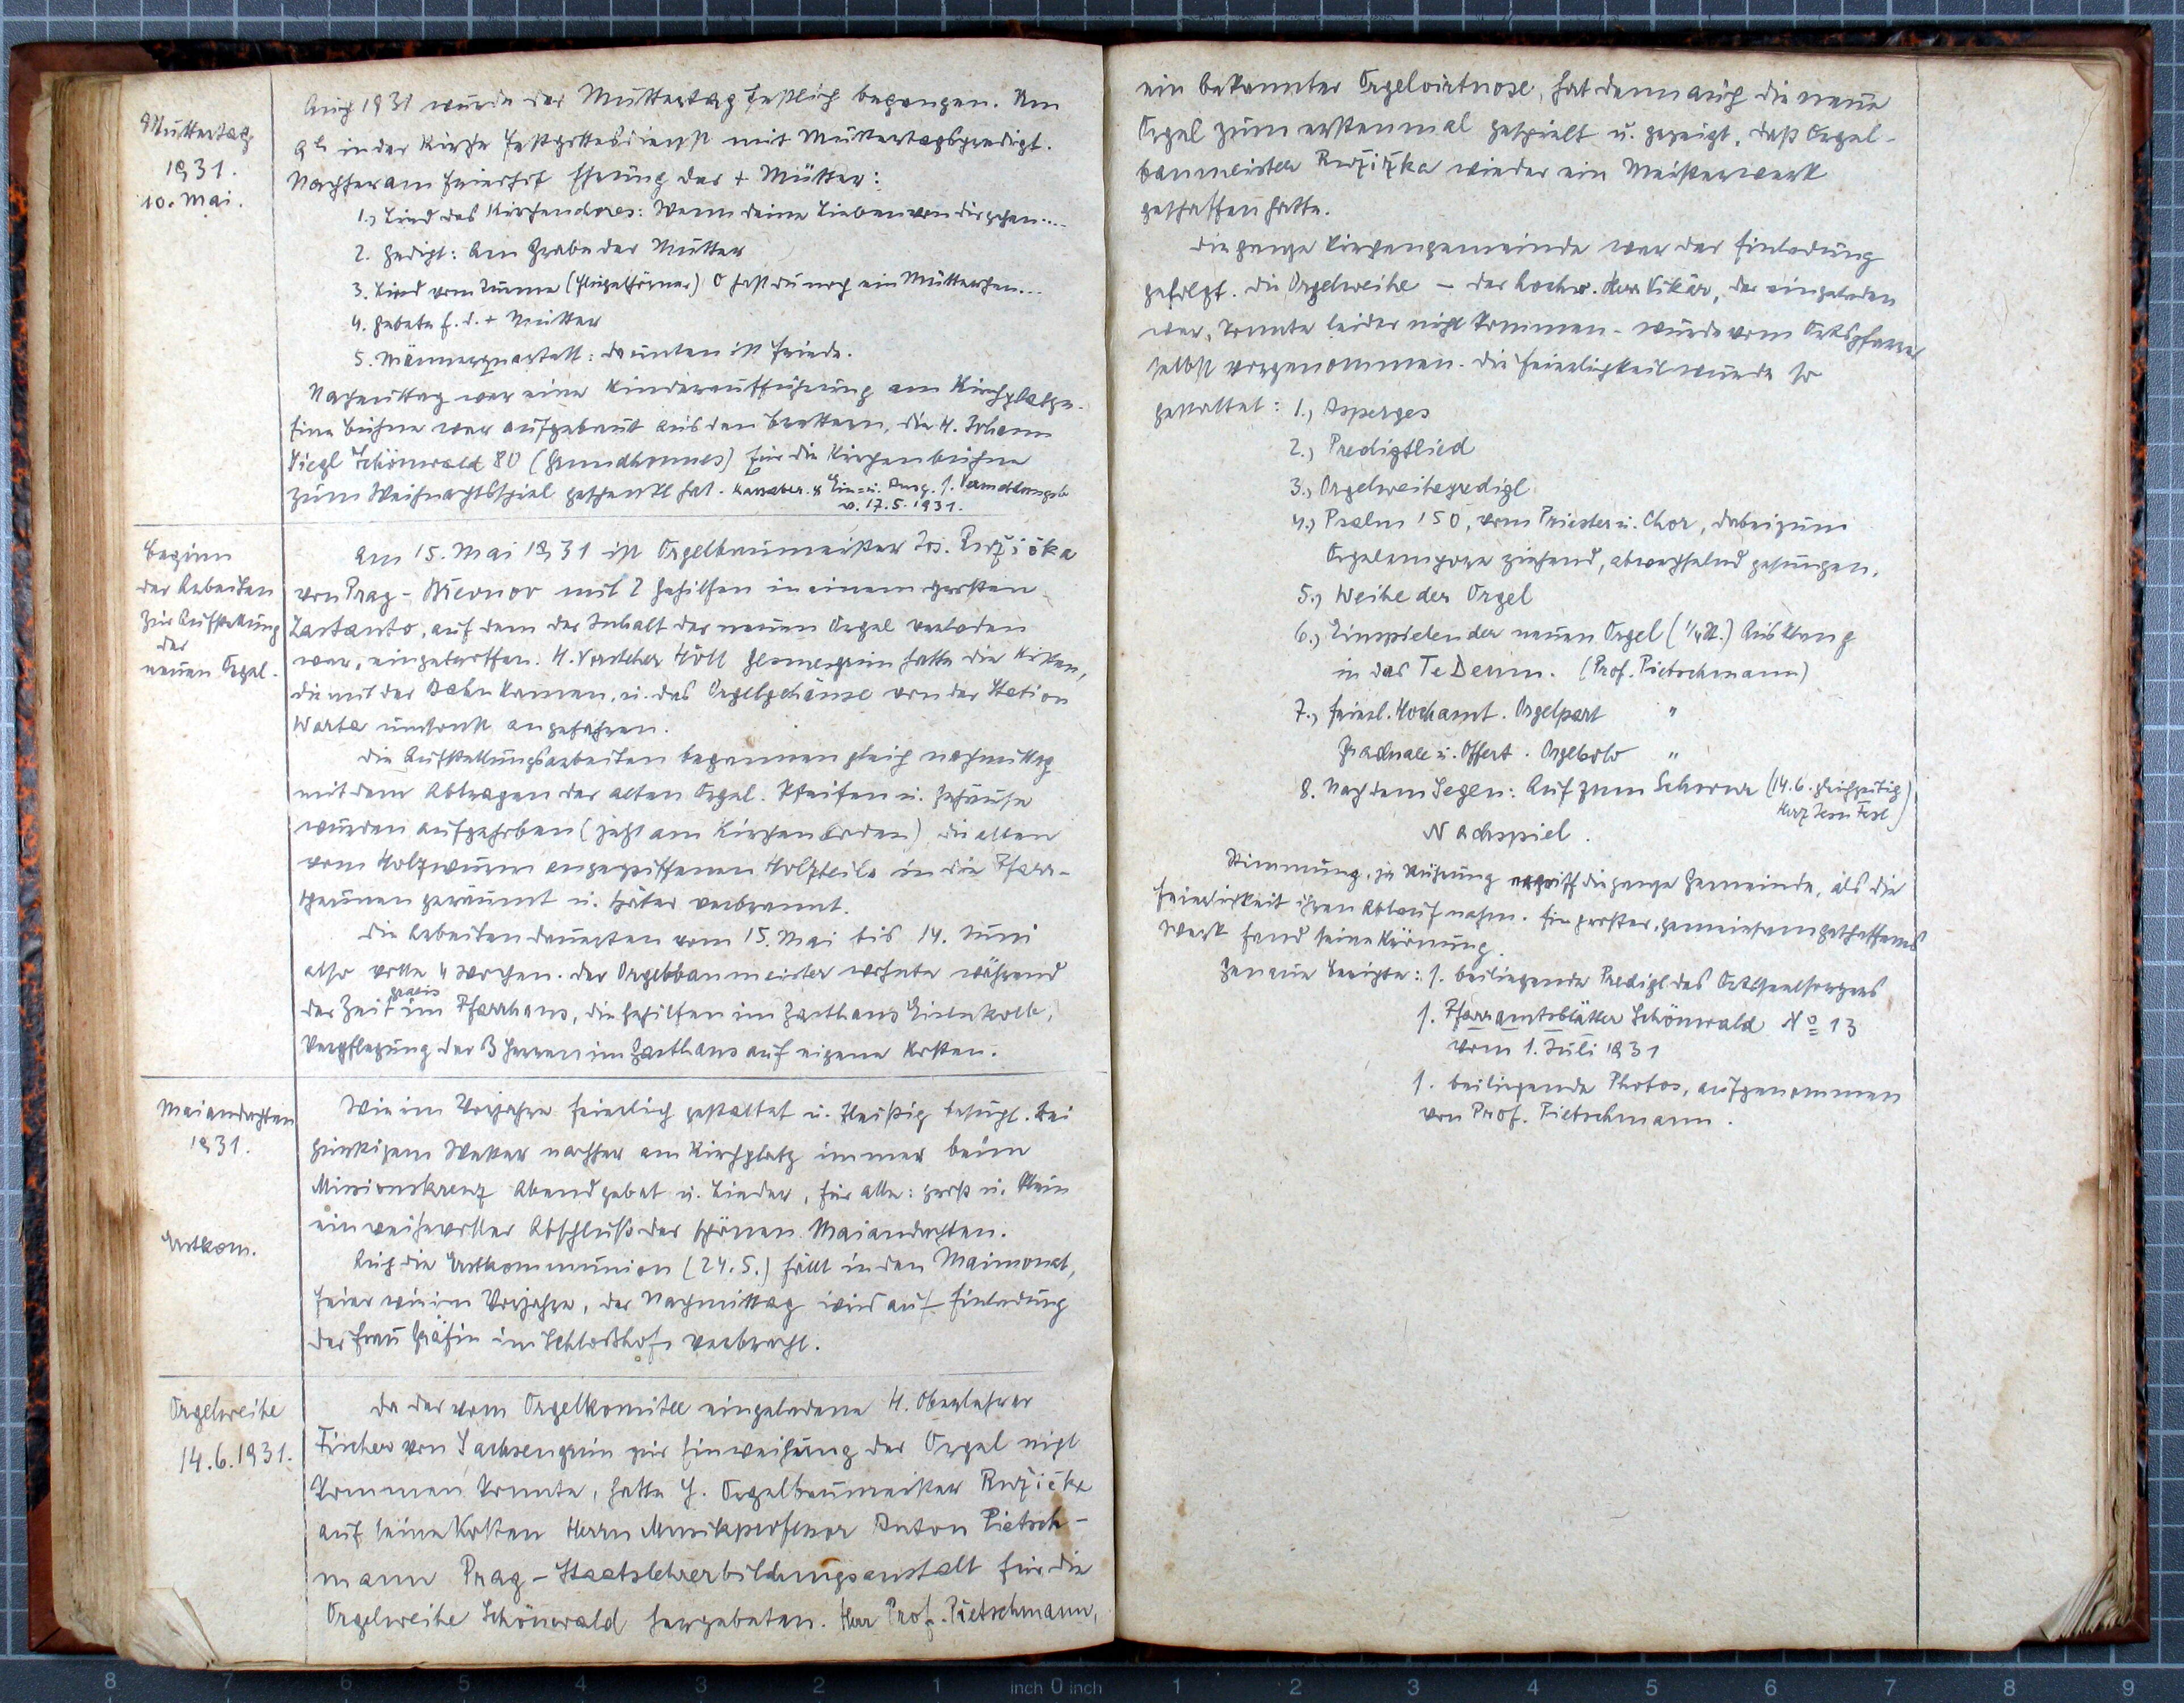 Muttertag
1931.
10. Mai.
Auch 1931 wurde der Muttertag festlich begangen. Um
9h in der Kirche Festgottesdienst mit Muttertagspredigt.
Nachher am Friedhof Ehrung der + Mütter:
1., Lied des Kirchenchores: Wenn deine Lieben von dir gehen...
2. Gedicht: Am Grabe der Mutter
3. Lied vom Turme (Flügelhörner) O hast du noch ein Mütterchen...
4. Gebete f. d. + Mütter
5. Männerquartett: Da unten ist Friede.
Nachmittag war eine Kinderaufführung am Kirchplatze.
Eine Bühne war aufgebaut aus den Brettern, die H. Johann
Siegl Schönwald 80 (Grundhannes) für die Kirchenbühne
zum Weihnachtsspiel geschenkt hat. Kassaber. u. Ein- u. Ausg. s. Vermeldungsb.
v. 17.5.1931.
Beginn
der Arbeiten
zur Aufstellung
der
neuen Orgel.
Am 15. Mai 1931 ist Orgelbaumeister Jos. Ružička
von Prag - Břevnov mit 2 Gehilfen in einem großen
Lastauto, auf dem der Inhalt der neuen Orgel verladen
war, eingetroffen. H. Vorsteher Höll hatte die Kisten,
die mit der Bahn kamen, u. das Orgelgehäuse von der Station
Warta umsonst angefahren.
Die Aufstellungsarbeiten begannen gleich nachmittag
mit dem Abtragen der alten Orgel. Pfeifen u. Gehäuse
wurden aufgehoben (jetzt am Kirchenboden) die alten
vom Holzwurm angegriffenen Holzteile in die Pfarr-
scheunen geräumt u. später verbrannt.
Die Arbeiten dauerten vom 15. Mai bis 14. Juni
also volle 4 Wochen. Der Orgelbaumeister wohnte während
der Zeit gratis im Pfarrhaus, die Gehilfen im Gasthaus
Verpflegung der 3 Herren im Gasthaus auf eigene Kosten.
Maiandachten
1931.
Wie im Vorjahre feierlich gestaltet u. fleißig besucht. Bei
günstigem Wetter nachher am Kirchplatz immer beim
Missionskreuz Abendgebet u. Lieder, für alle: groß u. klein
ein weihevoller Abschluß der schönen Maiandachten.
Erstkom.
Auch die Erstkommunion (24.5.) fällt in den Maimonat,
Feier wie im Vorjahre, der Nachmittag wird auf Einladung
der Frau Gräfin im Schloßhofe verbracht.
Orgelweihe
14.6.1931.
Da der vom Orgelkomitee eingeladene H. Oberlehrer
Fischer von Sachsengrün zur Einweihung der Orgel nicht
kommen konnte, hatte H. Orgelbaumeister Ružička
auf seine Kosten Herrn Musikprofessor Anton Pietsch-
mann Prag - Staatslehrerbildungsanstalt für die
Orgelweihe Schönwald hergebeten. Herr Prof. Pietschmann,
ein bekannter Orgelvirtuose, hat denn auch die neue
Orgel zum erstenmal gespielt u. gezeigt, daß Orgel-
baumeister Ružička wieder ein Meisterwerk
geschaffen hatte.
Die ganze Kirchengemeinde war der Einladung
gefolgt. Die Orgelweihe - der hochw. Herr Vikär, der eingeladen
war, konnte leider nicht kommen - wurde vom Ortspfarrer
selbst vorgenommen. Die Feierlichkeit wurde so
gestaltet: 1., Asperges
2., Predigtlied
3., Orgelweihepredigt
4., Psalm 150, vom Priester u. Chor, dabei zum
Orgelempore ziehend, abwechselnd gesungen.
5., Weihe der Orgel
6., Einspielen der neuen Orgel (1/4 St.) Ausklang
in das Te Deum. (Prof. Pietschmann)
7., feierl. Hochamt. Orgelpart "
Graduale u. Offert. Orgelsolo "
8. Nach dem Segen: Auf zum Schwur (14.6. gleichzeitig
Herz Jesu Fest)
Nachspiel.
Stimmung, ja Rührung ergriff die ganze Gemeinde, als die
Feierlichkeit ihren Ablauf nahm. Ein großes, gemeinsam geschaffenes
Werk fand seine Krönung.
Genaue Berichte: s. beiliegende Predigt des Ortsseelsorgers
s. Pfarramtsblätter Schönwald No 13
vom 1. Juli 1931
s. beiliegende Photos, aufgenommen
von Prof. Pietschmann.
8 7 6 5 4 3 2 1 inch 0 inch 1 2 3 4 5 6 7 8 9